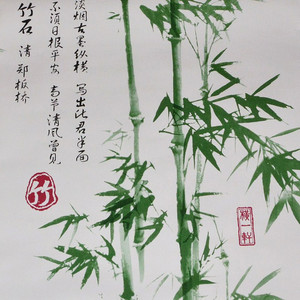 淡烟古墨纵横 写出此君半面
不须日报平安 高节清风曾见
竹石 清 郑板桥
竹